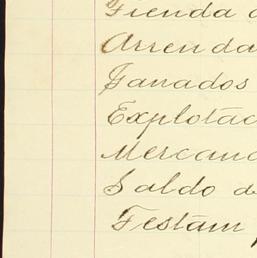 Tienda d
Arrenda
Ganados
Explotac
Mercanc
Saldo de
Testam